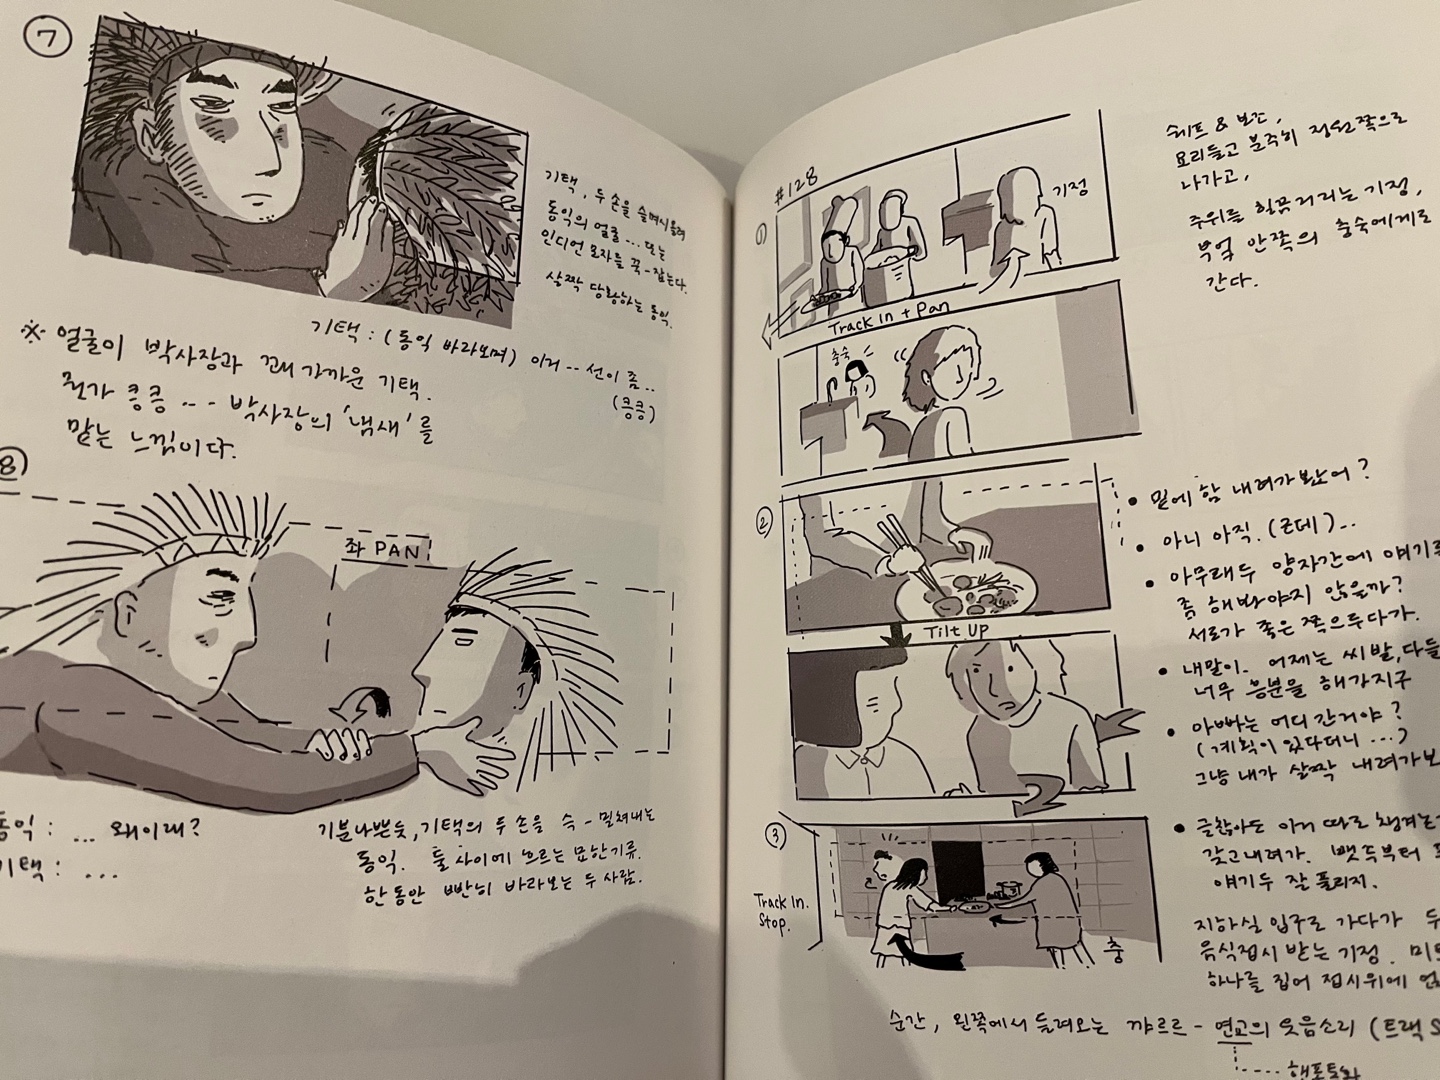 ⑦
기택, 두 손을 슬며시 올려
동익의 얼굴 … 또는
인디언 모자를 꾹 - 잡는다.
살짝 당황하는 동익.
기택 : (동익 바라보며) 이거 -- 선이 좀 ..
(킁킁)
※ 얼굴이 박사장과 꽤 가까운 기택.
뭔가 킁킁 -- - 박사장의 '냄새'를
맡는 느낌이다.
⑧
좌 PAN
동익 : … 왜이래?
기택 : …
기분나쁜듯, 기택의 두 손을 슥 - 밀쳐내는
동익. 둘 사이에 흐르는 묘한기류.
한동안 빤히 바라보는 두 사람.
#128
①
기정
Track In + Pan
충숙
쉐프 & 보조,
요리들고 분주히 정원쪽으로
나가고,
주위를 힐끔거리는 기정,
부엌 안쪽의 충숙에게로
간다.
②
Tilt UP
• 밑에 함 내려가봤어?
• 아니 아직. (근데)…
• 아무래두 양자간에 얘기를
좀 해봐야지 않을까?
서로가 좋은쪽으루다가.
• 내말이. 어제는 씨발, 다들
너무 흥분을 해가지구
• 아빠는 어디간거야?
(계획이 있다더니 …)
그냥 내가 살짝 내려가보
③
Track In.
Stop.
충
• 글찮아도 이거 따로 챙겨
갖고내려가.
얘기두 잘 풀리지.
지하실 입구로 가다가
음식접시 받는 기정.
하나를 집어 접시위에
순간, 왼쪽에서 들려오는 꺄르르 - 연교의 웃음소리 (트랙 S